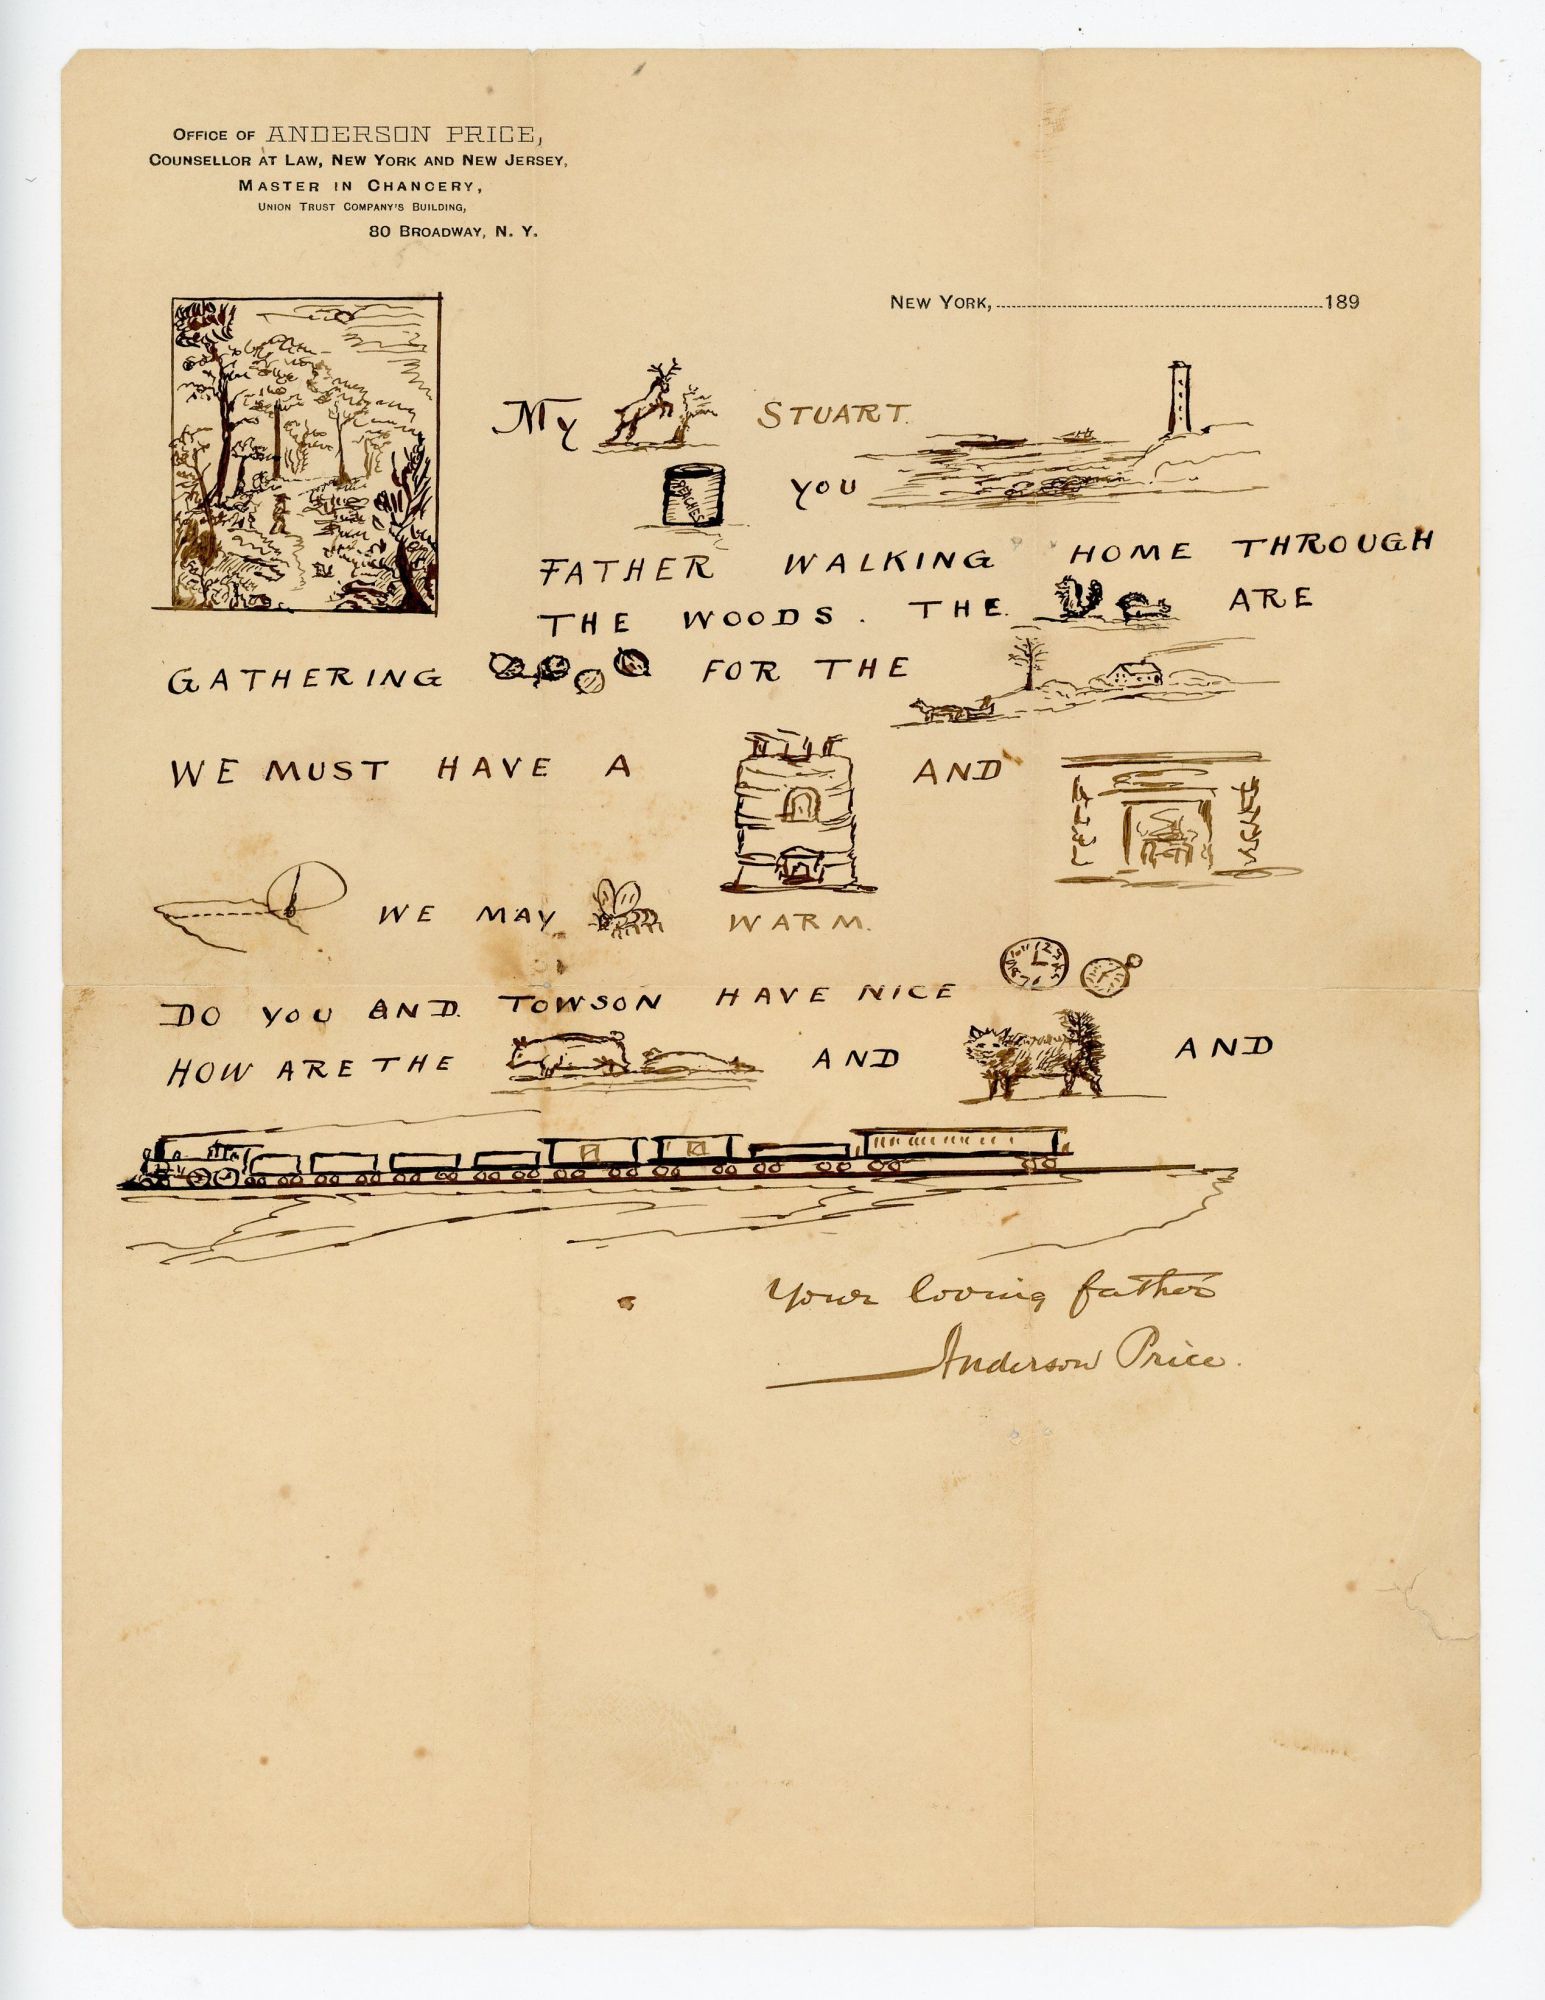 OFFICE OF ANDERSON PRICE,
COUNSELLOR AT LAW, NEW YORK AND NEW JERSEY,
MASTER IN CHANCERY,
UNION TRUST COMPANY'S BUILDING,
80 BROADWAY, N. Y.
NEW YORK, 189
My STUART.
PEACHES YOU
FATHER WALKING HOME THROUGH
THE WOODS. THE ARE
GATHERING FOR THE
WE MUST HAVE A AND
WE MAY WARM.
DO YOU AND TOWSON HAVE NICE
HOW ARE THE AND AND
Your loving father
Anderson Price.